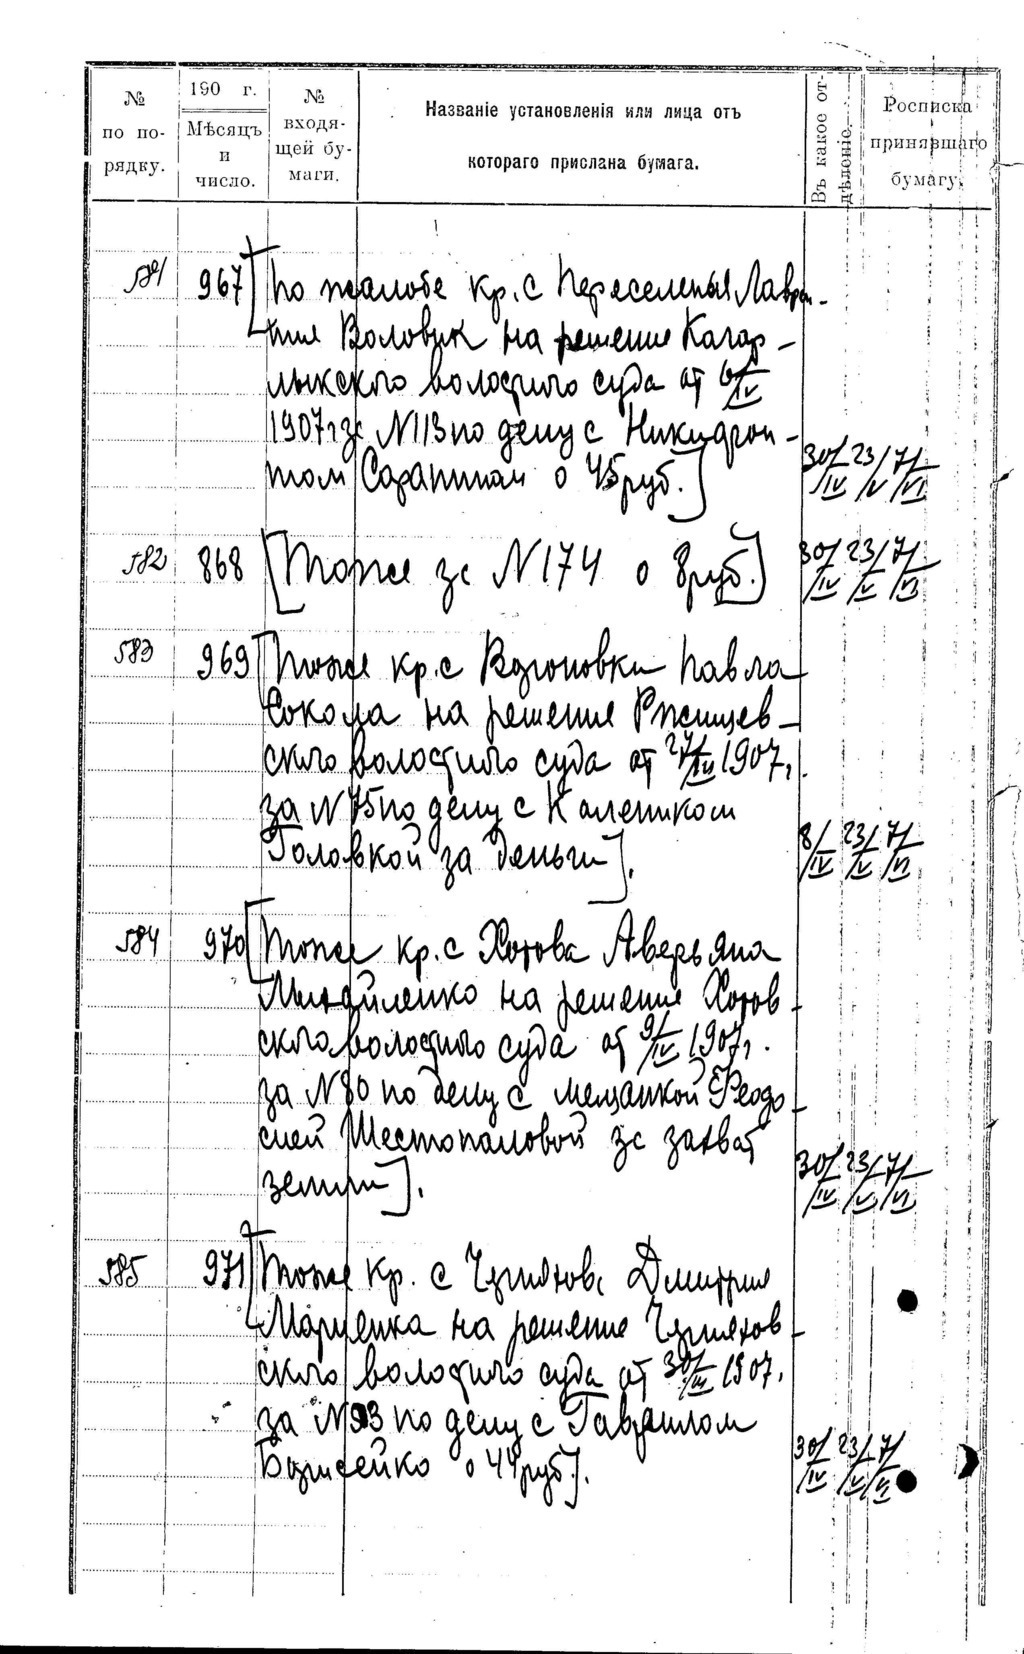 № по порядку.
190 г. Мѣсяцъ и число.
№ входящей бумаги.
Названіе установленія или лица отъ
котораго прислана бумага.
Въ какое отдѣленіе.
Росписка принявшаго бумагу.
581 967 [По жалобе кр. с Переселенья Лаврен-
тия Воловик на решение Кагар-
лыкского волостного суда от 6/IV
1907 г за N113 по делу с
о 45 руб.] 30/IV 23/V 7/VI
582 868 [Тоже за N174 о 8 руб.] 30/IV 23/V 7/VI
583 969 [Тоже кр. с Павла
Сокола на решение Ржищев-
ского волостного суда от 27/III 1907 г.
за N75 по делу с Калеником
Головкой за деньги]. 8/IV 23/V 7/VI
584 970 [Тоже кр. с Хотова Аверьяна
Михайленко на решение Хотов-
ского волостного суда от 9/IV 1907 г.
за N80 по делу с мещанкой Феодо-
сией Шестопаловой за захват
земли]. 30/IV 23/V 7/VI
585 971 [Тоже кр. с Дмитрия
Марченка на решение
ского волостного суда от 30/III 1907.
за N93 по делу с Гавриилом
о 44 руб]. 30/IV 23/V 7/VI